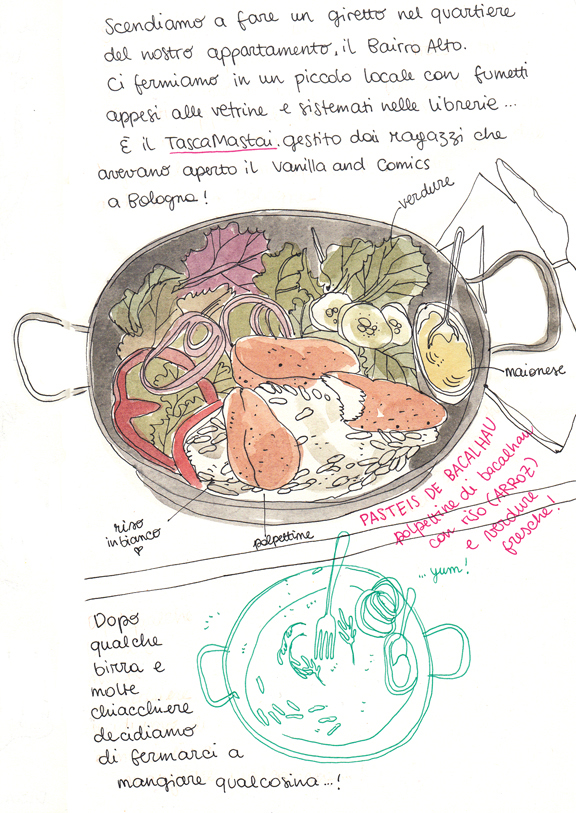 Scendiamo a fare un giretto nel quartiere
del nostro appartamento, il Bairro Alto.
Ci fermiamo in un piccolo locale con fumetti
appesi alle vetrine e sistemati nelle librerie...
È il TascaMastai, gestito dai ragazzi che
avevano aperto il Vanilla and Comics
a Bologna!
verdure
maionese
PASTEIS DE BACALHAU
polpettine di bacalhau
con riso (ARROZ)
e verdure
fresche!
riso
in bianco
polpettine
...yum!
Dopo
qualche
birra e
molte
chiacchiere
decidiamo
di fermarci a
mangiare qualcosina...!